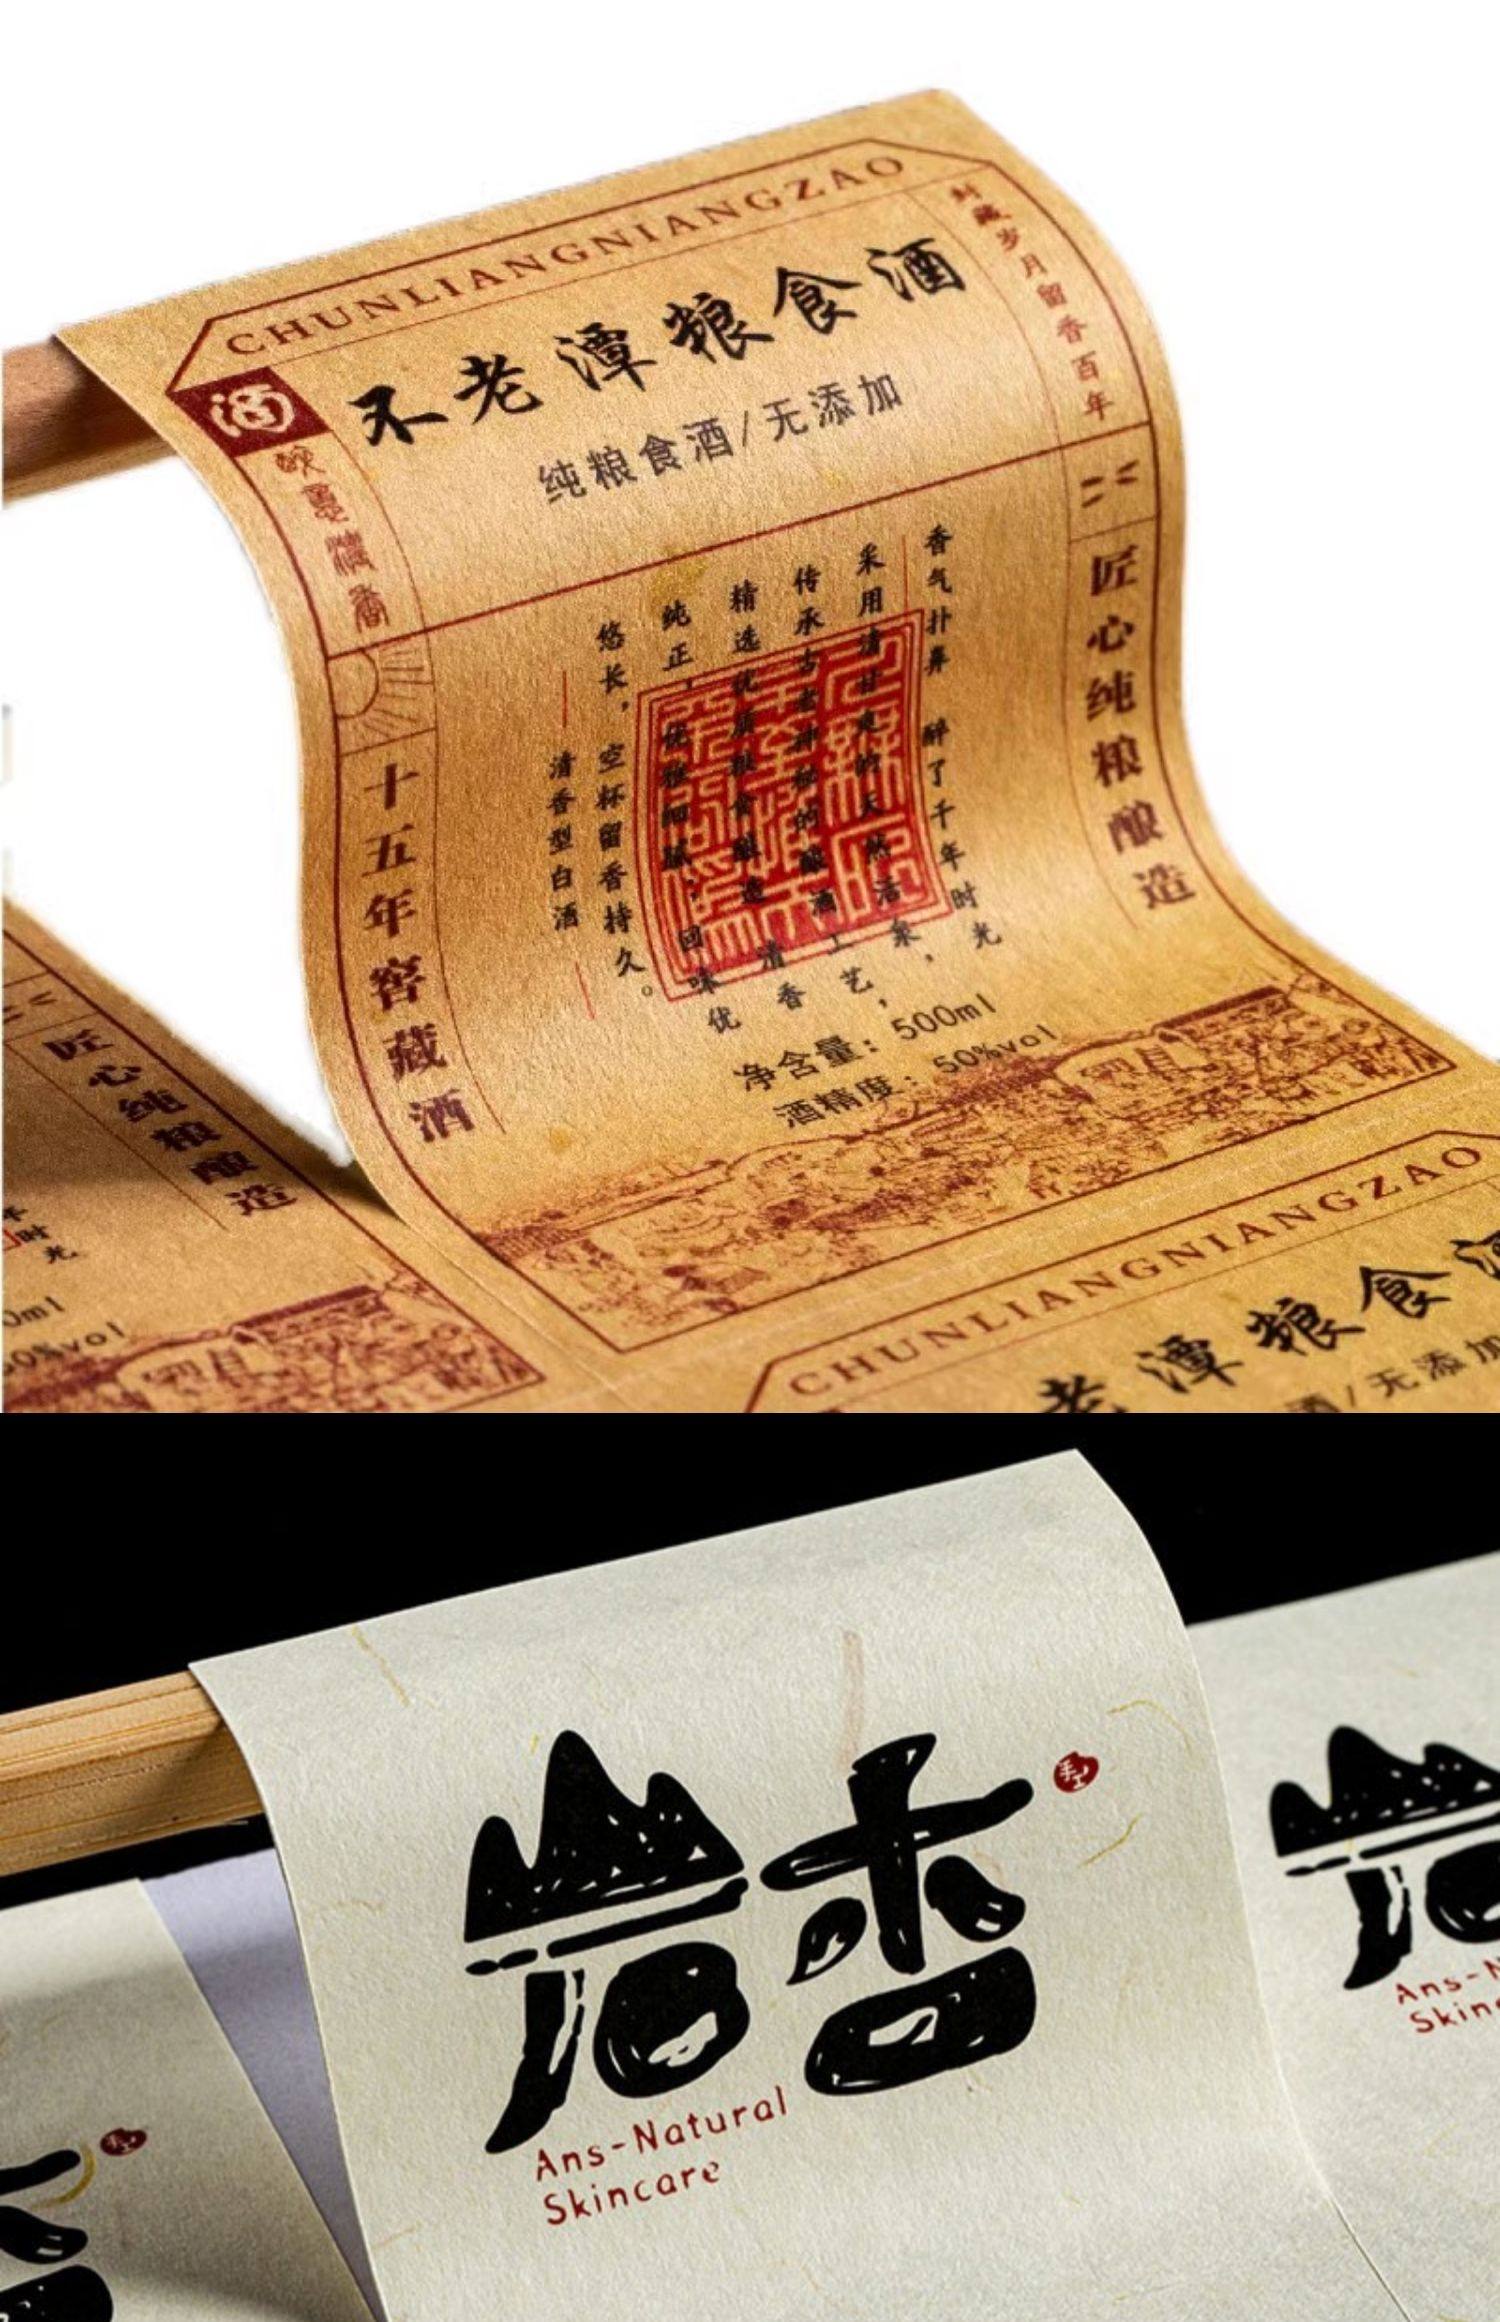 CHUNLIANGNIANGZAO
不老潭粮食酒
纯粮食酒/无添加
封藏岁月留香百年
匠心纯粮酿造
酒
十五年窖藏酒
香气扑鼻 醉了千年时光
采用清甘爽的天然活泉，
传承古老神秘的酿酒工艺，
精选优质粮食酿造 清香
纯正，优雅细腻；回味优
悠长，空杯留香持久。
清香型白酒
净含量：500ml
酒精度：50%vol
匠心纯粮酿造
时光
0ml
50%vol
CHUNLIANGNIANGZAO
老潭粮食酒
酒/无添加
岩香
手工
Ans-Natural
Skincare
岩
Ans-N
Skinc
手工
香